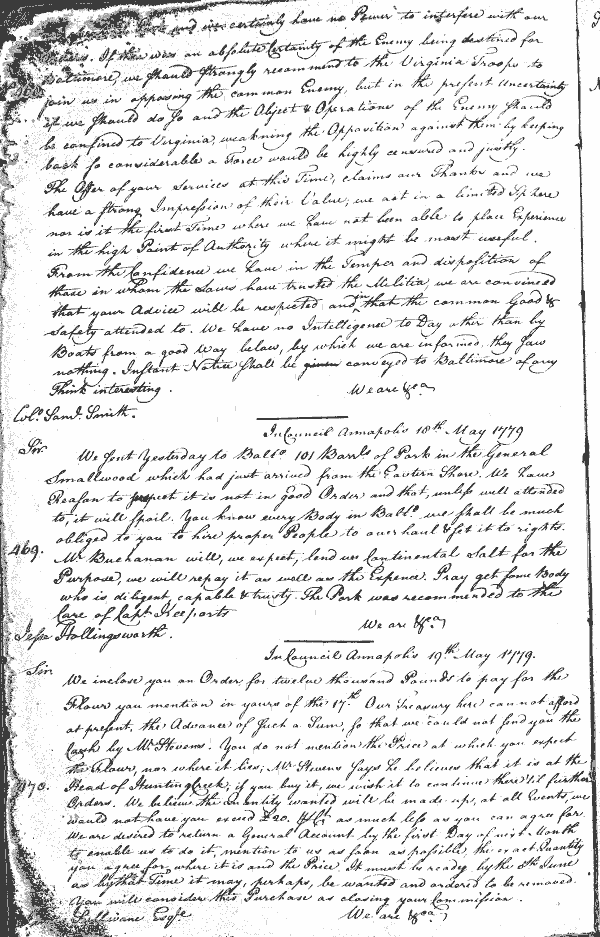 and we certainly have no Power to interfere with our
If there was an absolute Certainty of the Enemy being destined for
Baltimore, we should strongly recommend to the Virginia Troops to
join us in opposing the common Enemy, but in the present uncertainty
if we should do so and the Object & Operations of the Enemy should
be confined to Virginia, weakning the Opposition against them by keeping
back so considerable a Force would be highly censured and justly.
The Offer of your Services at this Time, claims our Thanks and we
have a strong Impression of their Value, we act in a limited Sphere
nor is it the first Time where we have not been able to place Experience
in the high Point of Authority where it might be most useful.
From the Confidence we have in the Temper and disposition of
those in whom the Laws have trusted the Militia, we are convinced
that your Advice will be respected and that the common Good &
Safety attended to. We have no Intelligence to Day other than by
Boats from a good Way below, by which we are informed, they saw
nothing. Instant Notice shall be given conveyed to Baltimore of any
Think interesting. We are &ca
Colo. Saml. Smith.
In Council Annapolis 18th May 1779
Sir
We sent Yesterday to Balto. 101 Barrls of Pork in the General
Smallwood which had just arrived from the Eastern Shore. We have
Reason to it is not in good Order and that, unless well attended
to, it will spoil. You know every Body in Balto. we shall be much
obliged to you to hire proper People to overhaul & set it to rights.
469. Mr Buchanan will, we expect, lend us Continental Salt for the
Purpose, we will repay it as well as the Expence. Pray get some Body
who is diligent, capable & trusty. The Pork was recommended to the
Care of Capt. Keeports We are &ca
Jesse Hollingsworth.
In Council Annapolis 19th May 1779.
Sir
We inclose you an Order for twelve thousand Pounds to pay for the
Flour you mention in yours of the 17th. Our Treasury here cannot afford
at present, the Advance of such a Sum, so that we could not send you the
Cash by Mr Stevens. You do not mention the Price at which you expect
the Flour, nor where it lies; Mr Stevens says he believes that it is at the
470. Head of Hunting Creek; if you buy it, we wish it to continue there 'til further
Orders. We believe the Quantity wanted will be made up, at all Events, we
would not have you exceed £20. as much less as you can agree for
We are desired to return a General Account by the first Day of next Month
to enable us to do it, mention to us as soon as possible, the exact Quantity
you agree for, where it is and the Price. It must be ready by the 8th June
as by that Time it may, perhaps, be wanted and ordered to be removed.
You will consider this Purchase as closing your Commission.
Sullivane Esqr We are &ca